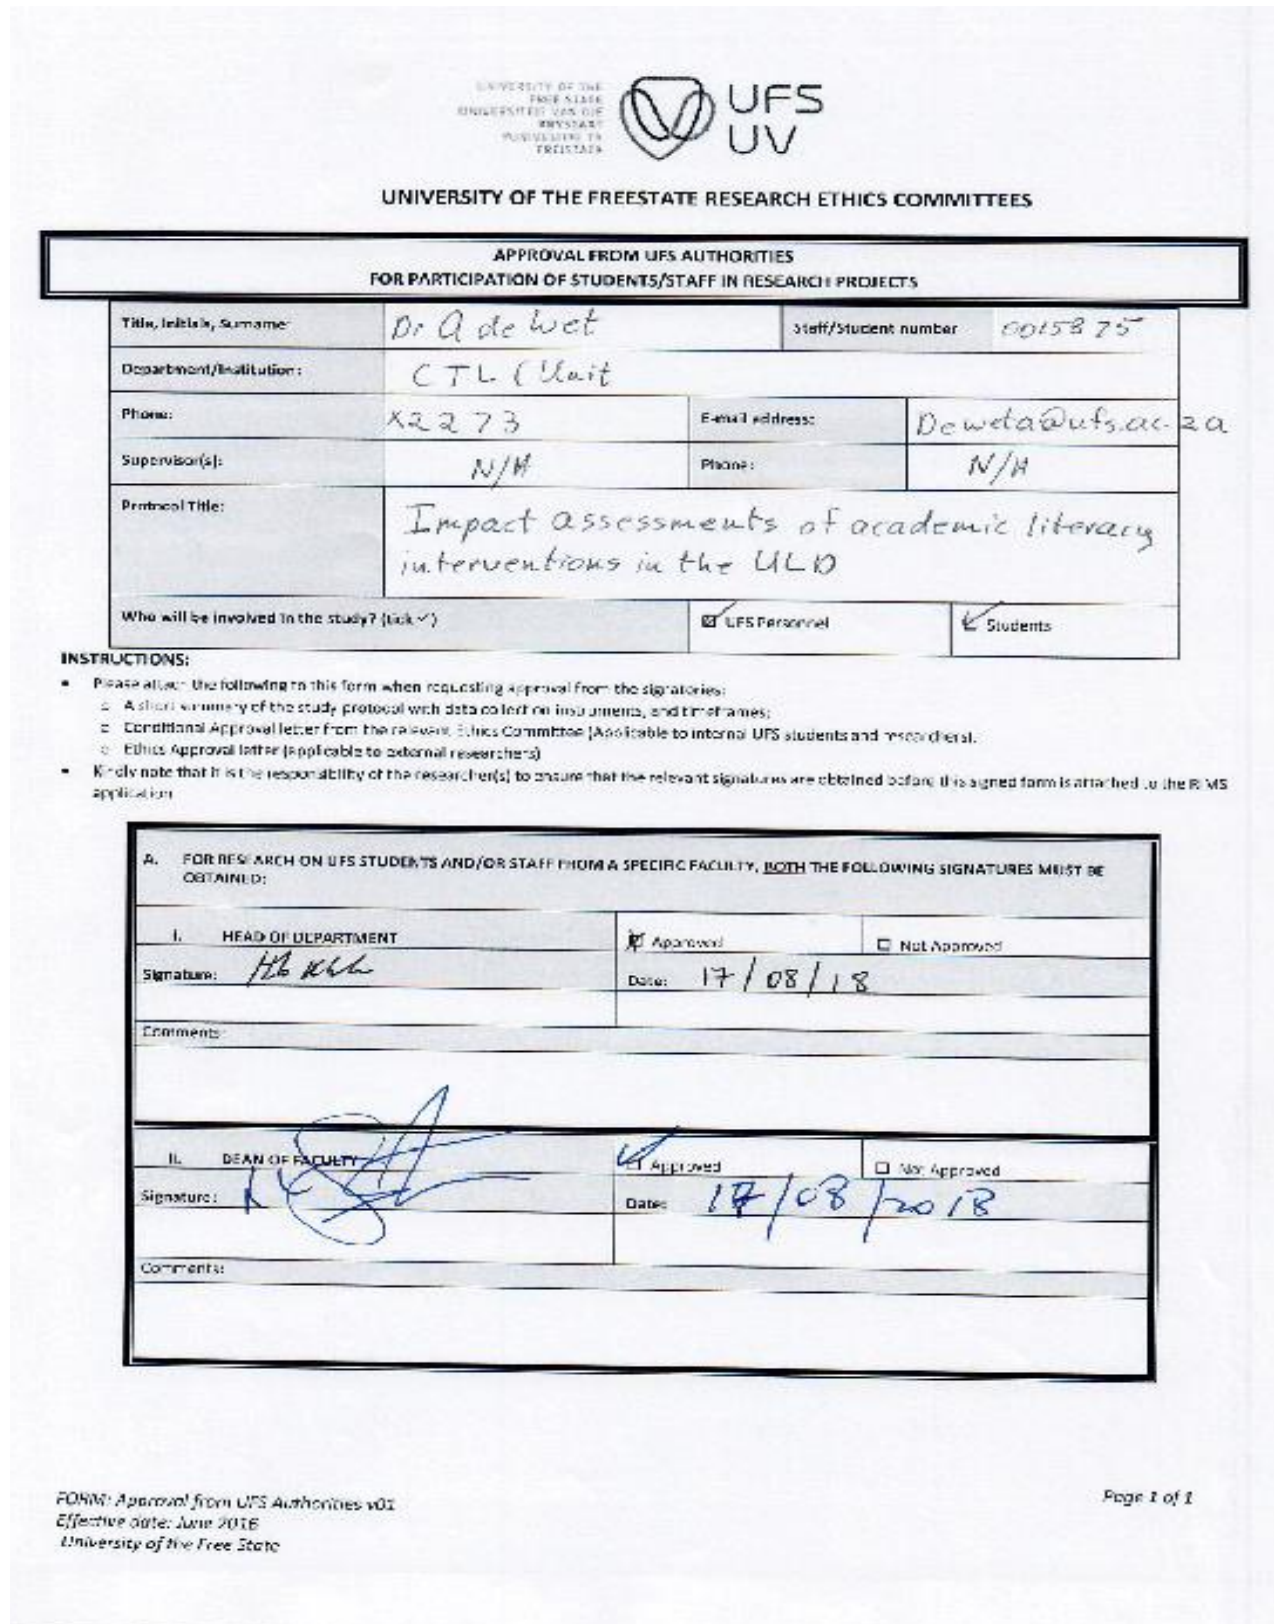 UNIVERSITY OF THE
FREE STATE
UNIVERSITEIT VAN DIE
VRYSTAAT
YUNIVESITHI YA
FREISTATA
UFS
UV
UNIVERSITY OF THE FREESTATE RESEARCH ETHICS COMMITTEES
APPROVAL FROM UFS AUTHORITIES
FOR PARTICIPATION OF STUDENTS/STAFF IN RESEARCH PROJECTS
Title, Initials, Surname: Dr A de Wet Staff/Student number 0015875
Department/Institution: CTL (Unit
Phone: X2273 E-mail address: Deweta@ufs.ac.za
Supervisor(s): N/A Phone: N/A
Protocol Title: Impact assessments of academic literacy
interventions in the ULD
Who will be involved in the study? (tick ✓) UFS Personnel Students
INSTRUCTIONS:
• Please attach the following to this form when requesting approval from the signatories:
o A short summary of the study protocol with data collection instruments, and timeframes;
o Conditional Approval letter from the relevant Ethics Committee (Applicable to internal UFS students and researchers).
o Ethics Approval letter (applicable to external researchers)
• Kindly note that it is the responsibility of the researcher(s) to ensure that the relevant signatures are obtained before this signed form is attached to the RIMS
application
A. FOR RESEARCH ON UFS STUDENTS AND/OR STAFF FROM A SPECIFIC FACULTY, BOTH THE FOLLOWING SIGNATURES MUST BE
OBTAINED:
I. HEAD OF DEPARTMENT Approved Not Approved
Signature: Date: 17/08/18
Comments:
II. DEAN OF FACULTY Approved Not Approved
Signature: Date: 17/08/2018
Comments:
FORM: Approval from UFS Authorities v01 Page 1 of 1
Effective date: June 2016
University of the Free State